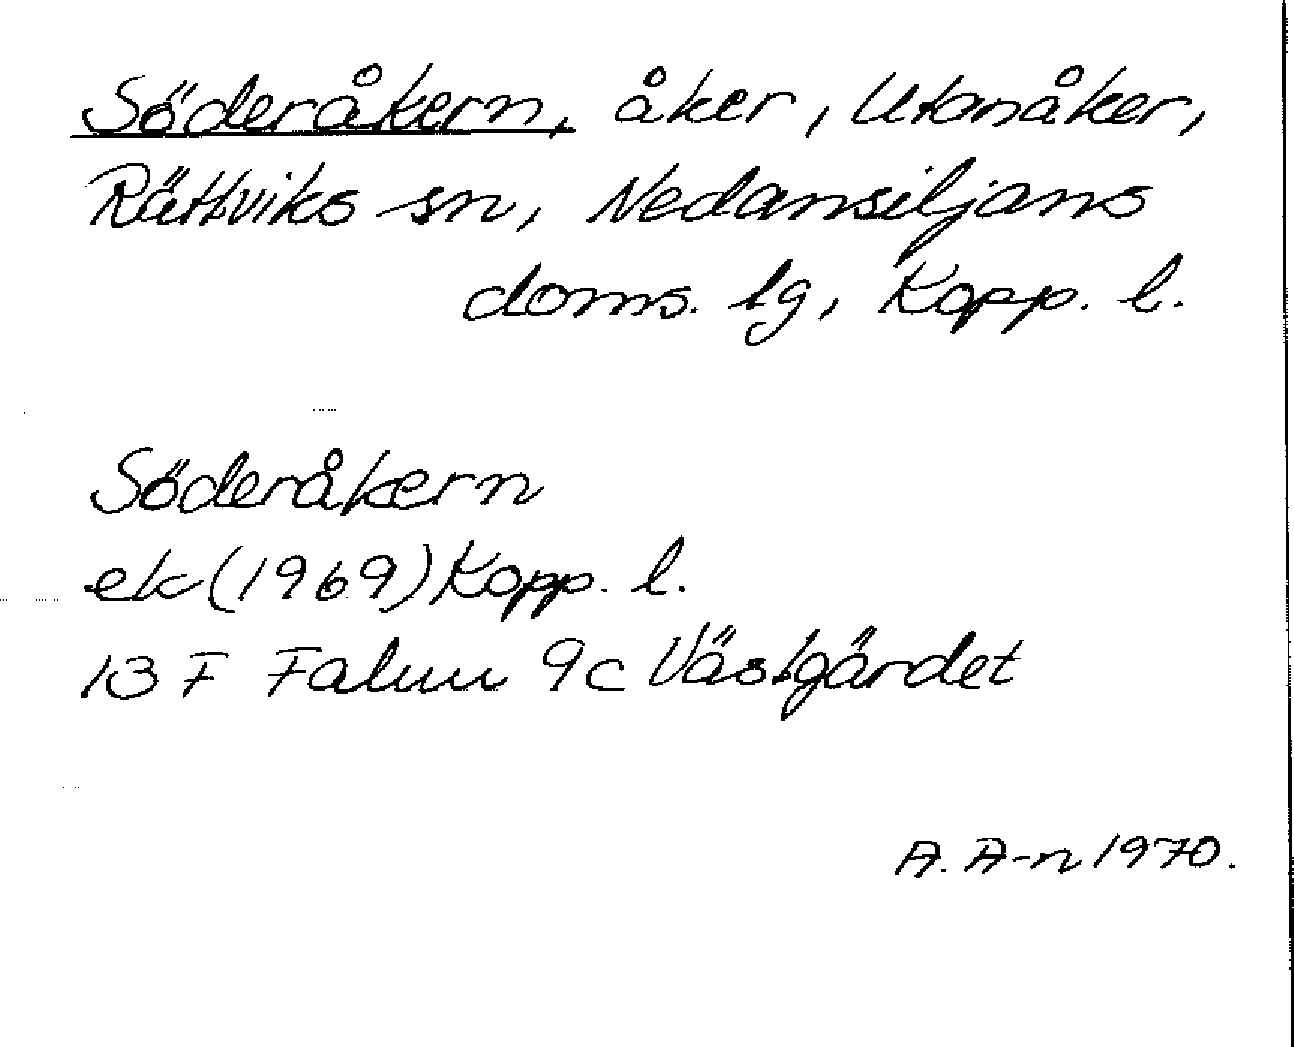 Söderåkern, åker, Utanåker,
Rättviks sn, Nedansiljans
doms. tg, Kopp. l.
Söderåkern
ek (1969) Kopp. l.
13 F Falun 9c Västgärdet
A. A-n 1970.